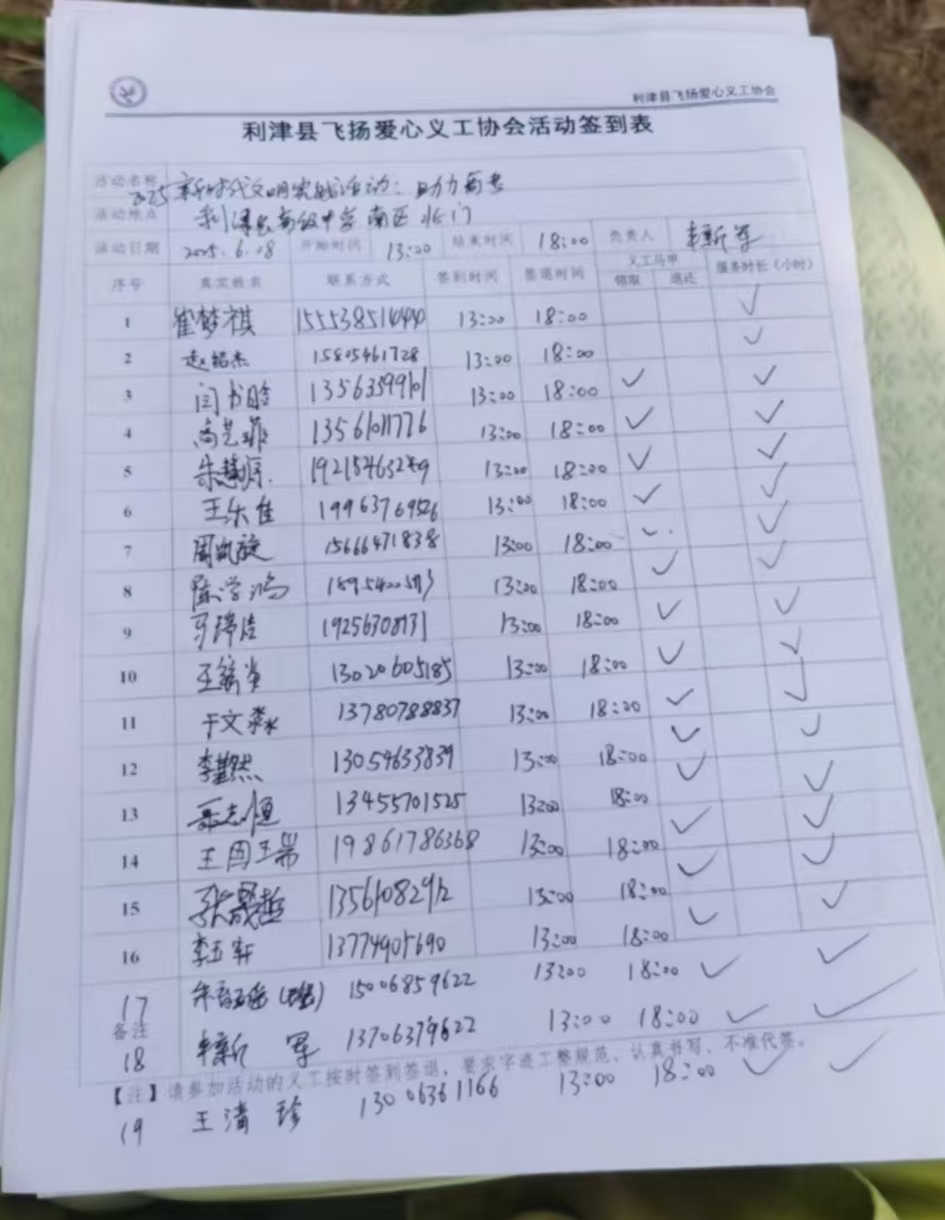 利津县飞扬爱心义工协会
利津县飞扬爱心义工协会活动签到表
活动名称 2025新时代文明实践活动：助力高考
活动地点 利津县高级中学南区北门
活动日期 2025.6.08 开始时间 13:00 结束时间 18:00 负责人 韩新军
序号 真实姓名 联系方式 签到时间 签退时间 义工马甲 服务时长（小时）
领取 退还
1 崔梦祺 13:00 18:00 ✓
2 赵绍杰 15805461728 13:00 18:00 ✓
3 闫书晗 13:00 18:00 ✓ ✓
4 高艺菲 13561011776 13:00 18:00 ✓ ✓
5 朱慧 13:00 18:00 ✓ ✓
6 王乐佳 19963769526 13:00 18:00 ✓ ✓
7 周凯旋 15666471838 13:00 18:00 ✓ ✓
8 陈学鸿 13:00 18:00 ✓ ✓
9 马瑞浩 19256308731 13:00 18:00 ✓ ✓
10 13020605185 13:00 18:00 ✓ ✓
11 于文淼 13780788837 13:00 18:00 ✓ ✓
12 13054633839 13:00 18:00 ✓ ✓
13 志恒 13455701525 13:00 18:00 ✓ ✓
14 王国瑞 19861786368 13:00 18:00 ✓ ✓
15 张晟哲 13561082912 13:00 18:00 ✓ ✓
16 李玉轩 13774905690 13:00 18:00 ✓ ✓
17 15006859622 13:00 18:00 ✓ ✓
备注
18 韩新军 13706379622 13:00 18:00 ✓ ✓
【注】请参加活动的义工按时签到签退，要求字迹工整规范、认真书写、不准代签。
19 王清珍 13006361166 13:00 18:00 ✓ ✓